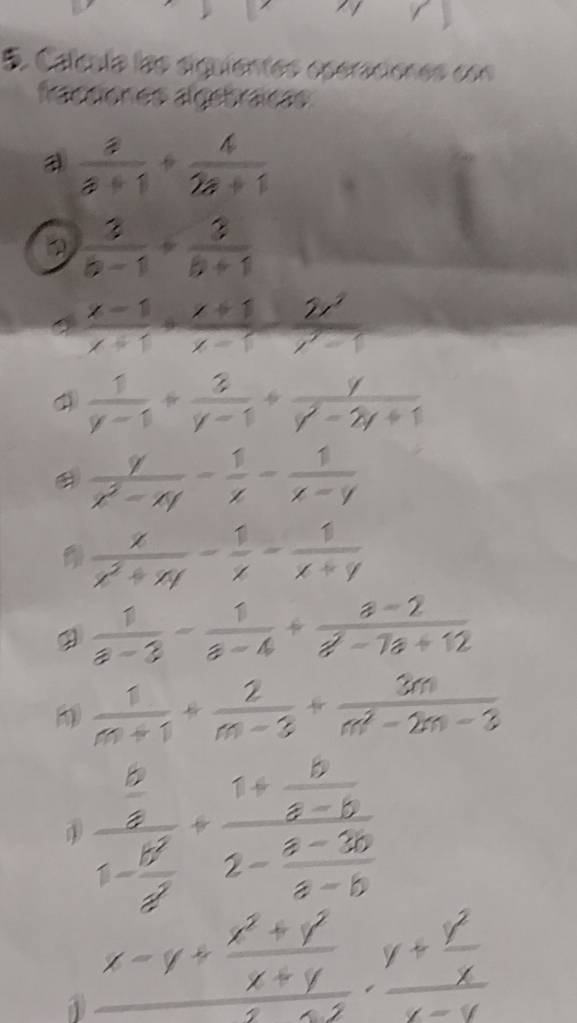 5. Calcula las siguientes operaciones con
fracciones algebraicas:
a) \frac{a}{a+1} + \frac{4}{2a+1}
b) \frac{3}{b-1} + \frac{3}{b+1}
c) \frac{x-1}{x+1} + \frac{x+1}{x-1} - \frac{2x^2}{x^2-1}
d) \frac{1}{y-1} + \frac{3}{y-1} + \frac{y}{y^2-2y+1}
e) \frac{y}{x^2-xy} - \frac{1}{x} - \frac{1}{x-y}
f) \frac{x}{x^2+xy} - \frac{1}{x} - \frac{1}{x+y}
g) \frac{1}{a-3} - \frac{1}{a-4} + \frac{a-2}{a^2-7a+12}
h) \frac{1}{m+1} + \frac{2}{m-3} + \frac{3m}{m^2-2m-3}
i) \frac{\frac{b}{a}}{1-\frac{b^2}{a^2}} + \frac{1+\frac{b}{a-b}}{2-\frac{a-3b}{a-b}}
j) x-y+\frac{x^2+y^2}{x+y} · \frac{y+\frac{y^2}{x}}{x-y}